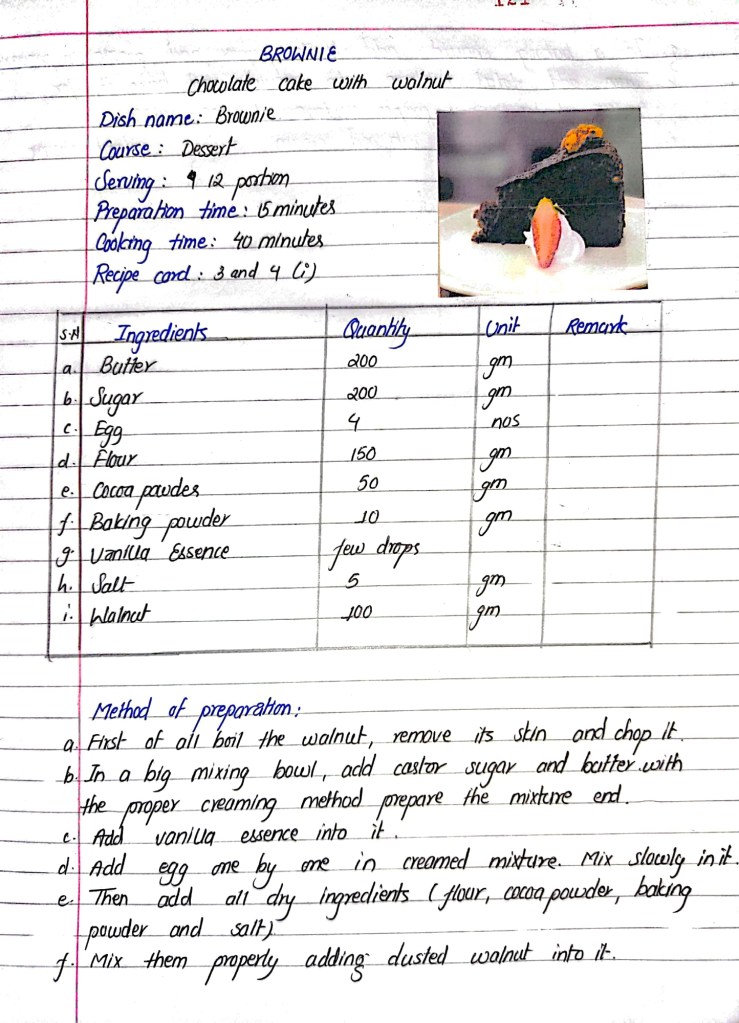 121
BROWNIE
Chocolate cake with walnut
Dish name: Brownie
Course: Dessert
Serving: 12 portion
Preparation time: 15 minutes
Cooking time: 40 minutes
Recipe card: 3 and 4 (i)
S.N Ingredients Quantity Unit Remark
a. Butter 200 gm
b. Sugar 200 gm
c. Egg 4 nos
d. Flour 150 gm
e. Cocoa powder 50 gm
f. Baking powder 10 gm
g. Vanilla Essence few drops
h. Salt 5 gm
i. Walnut 100 gm
Method of preparation:
a. First of all boil the walnut, remove its skin and chop it.
b. In a big mixing bowl, add castor sugar and butter with
the proper creaming method prepare the mixture end.
c. Add vanilla essence into it.
d. Add egg one by one in creamed mixture. Mix slowly in it.
e. Then add all dry ingredients (flour, cocoa powder, baking
powder and salt)
f. Mix them properly adding dusted walnut into it.